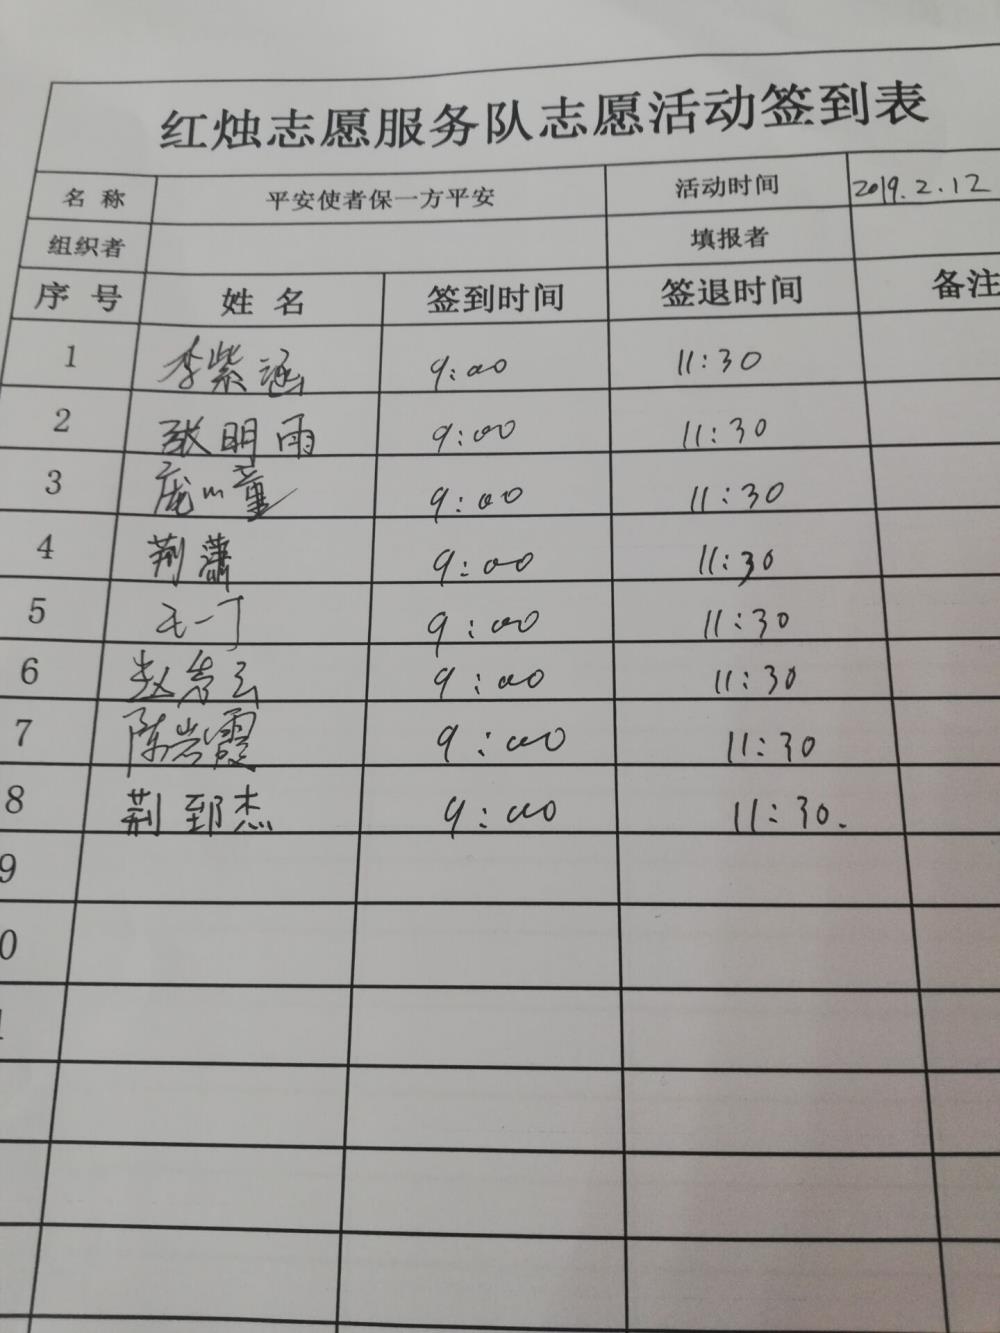 红烛志愿服务队志愿活动签到表
名 称 平安使者保一方平安 活动时间 2019.2.12
组织者 填报者
序 号 姓 名 签到时间 签退时间 备注
1 李紫涵 9:00 11:30
2 张明雨 9:00 11:30
3 庞 童 9:00 11:30
4 荆潇 9:00 11:30
5 一丁 9:00 11:30
6 赵 云 9:00 11:30
7 陈岩霞 9:00 11:30
8 荆郅杰 9:00 11:30.
9
0